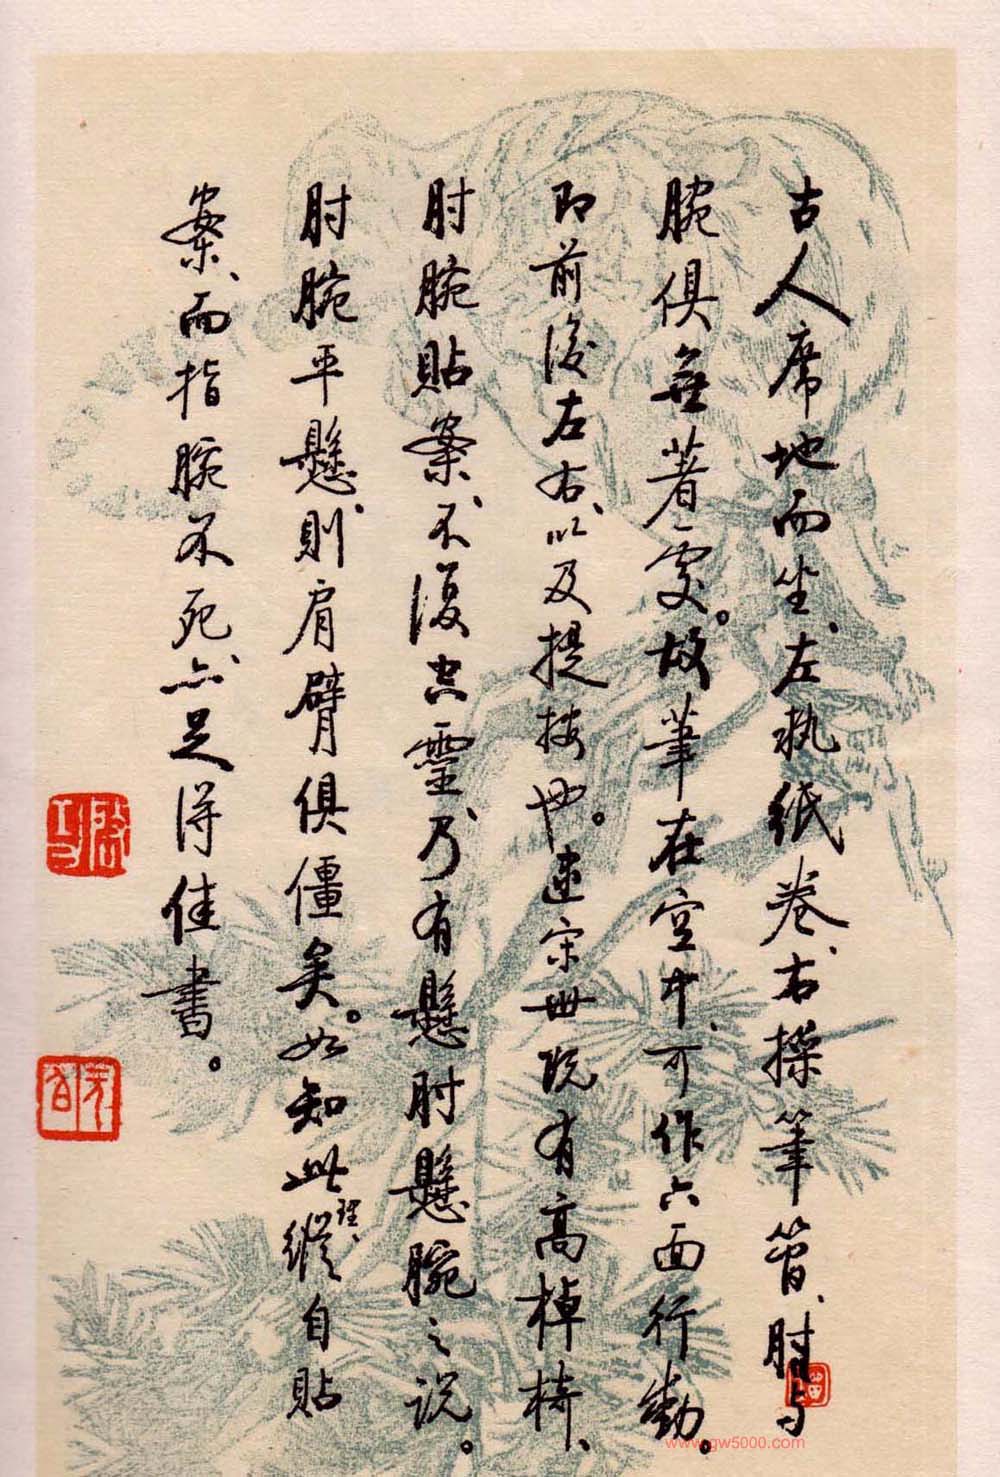 古人席地而坐、左执纸卷、右操筆管、肘与
腕俱無著處。故筆在空中、可作六面行動。
即前後左右、以及提按也。逮宋世既有高棹椅、
肘腕貼案、不復空靈、乃有懸肘懸腕之说。
肘腕平懸、則肩臂俱僵矣。如知此理、縱自貼
案、而指腕不死、亦足得佳書。
www.gw5000.com